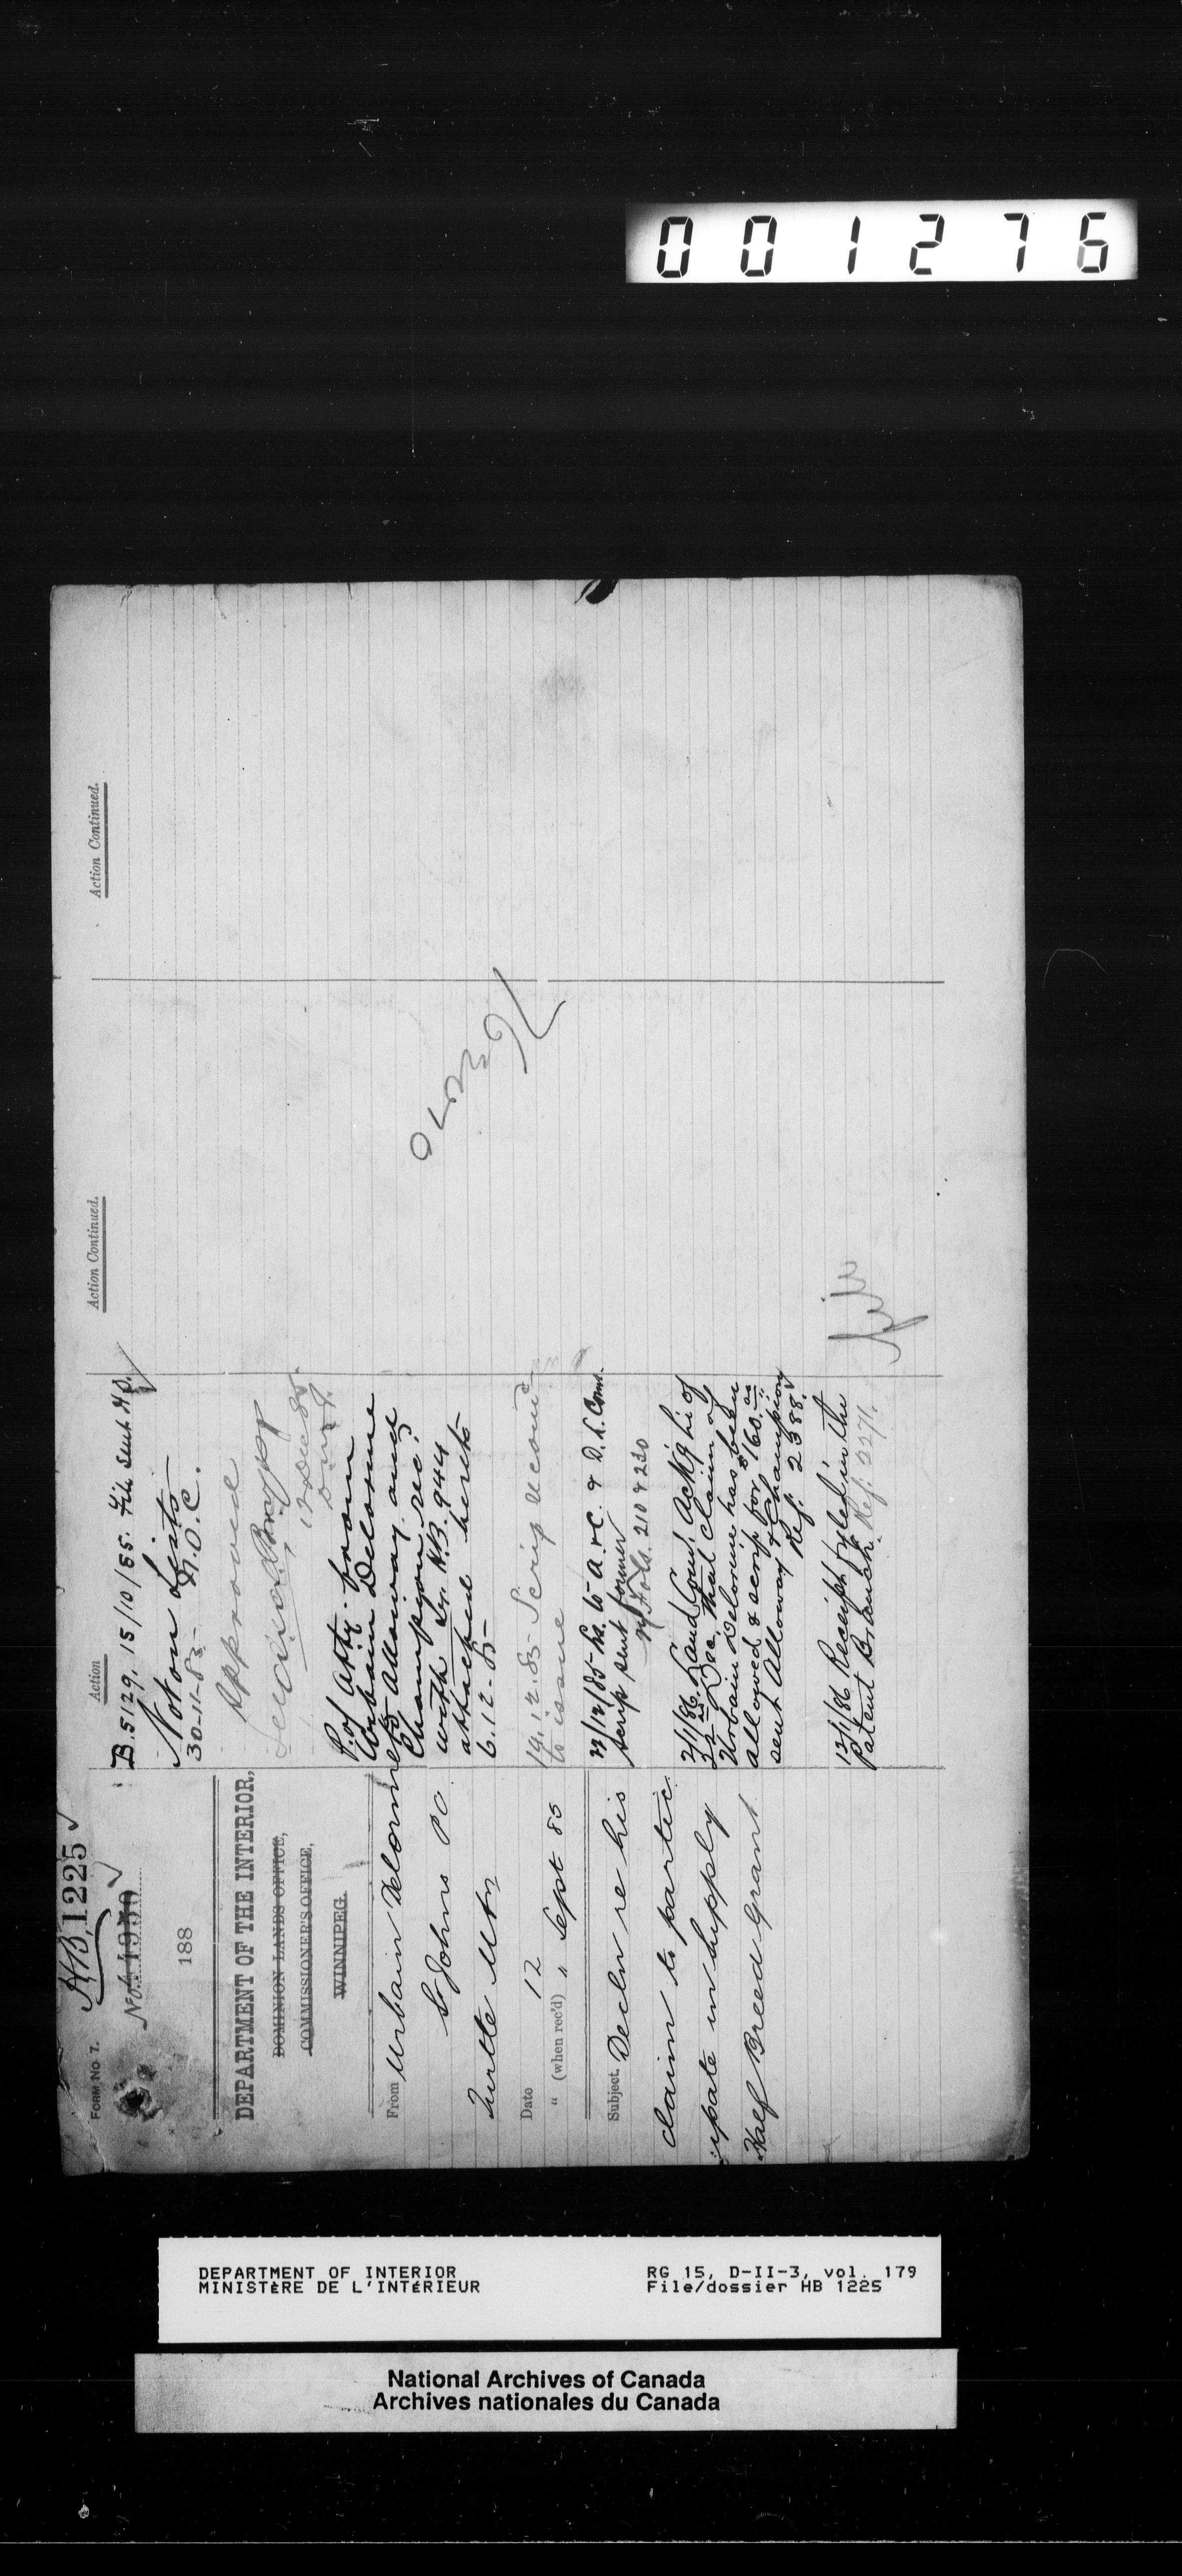 001276
FORM No 7.
HB, 1225 ✓
No. 4950 ✓
188
DEPARTMENT OF THE INTERIOR,
DOMINION LANDS OFFICE,
COMMISSIONER'S OFFICE,
WINNIPEG.
From Urbain Delorme
St Johns PO
Turtle Mtn
Date 12
" (when rec'd) " Sept 85
Subject. Decln re his
claim to partic
ipate in Supply
Half Breed Grant
Action
B.5129, 15/10/85. File sent
Not on Lists
30-11-85-
Approved
P. of Atty. from
Urbain Delorme
to Alloway and
Champion rec'd
with Lr. H.B. 944
attached hereto
6.12.85-
14.12.85 Scrip
to issue
scrip sent former
Fols. 210 & 230
2/1/86, Land Com'r Ack'g Lr of
22nd Dec. that claim of
Urbain Delorme has been
allowed & scrip for $160.00
sent Alloway & Champion
Ref: 2388 ✓
12/1/86 Receipt fyled in the
Patent Branch. Ref: 2271.
Action Continued.
Action Continued.
DEPARTMENT OF INTERIOR
MINISTÈRE DE L'INTÉRIEUR
RG 15, D-II-3, vol. 179
File/dossier HB 1225
National Archives of Canada
Archives nationales du Canada